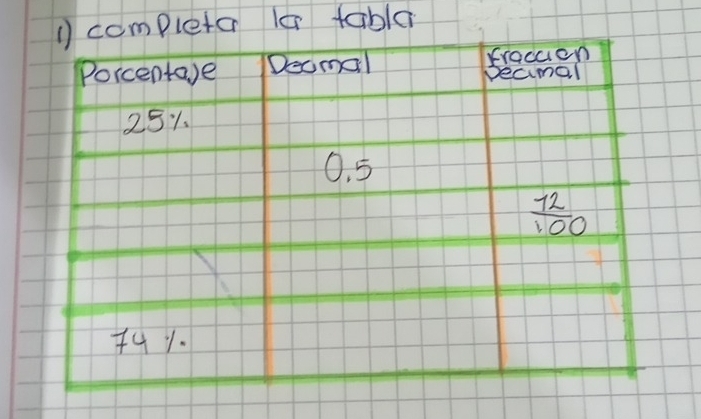 1) completa la tabla
Porcentaje Decimal Fraccion Decimal
25%
0.5
12/100
74%